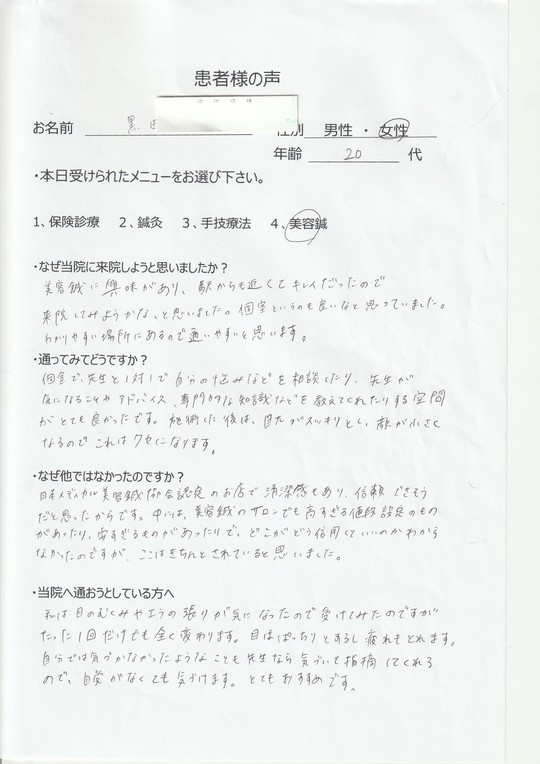 患者様の声
お名前 黒田 性別 男性 ・ 女性
年齢 20 代
・本日受けられたメニューをお選び下さい。
1、保険診療 2、鍼灸 3、手技療法 4、美容鍼
・なぜ当院に来院しようと思いましたか？
美容鍼に興味があり、駅からも近くてキレイだったので
来院してみようかな、と思いました。個室というのも良いなと思っていました。
わかりやすい場所にあるので通いやすいと思います。
・通ってみてどうですか？
個室で、先生と1対1で自分の悩みなどを相談したり、先生が
気になることやアドバイス、専門的な知識などを教えてくれたりする空間
がとても良かったです。施術した後は、目たがスッキリとし、顔が小さく
なるのでこれはクセになります。
・なぜ他ではなかったのですか？
日本メディカル美容鍼協会認定のお店で清潔感もあり、信頼できそう
だと思ったからです。中には、美容鍼のサロンでも高すぎる値段設定のもの
があったり、安すぎるものがあったりで、どこがどう信用していいのかわから
なかったのですが、ここはきちんとされていると思いました。
・当院へ通おうとしている方へ
私は目のむくみやエラの張りが気になったので受けてみたのですが
たった1回だけでも全く変わります。目はぱっちりとするし疲れもとれます。
自分では気づかなかったようなことも先生なら気づいて指摘してくれる
ので、自覚がなくても気づけます。とてもおすすめです。